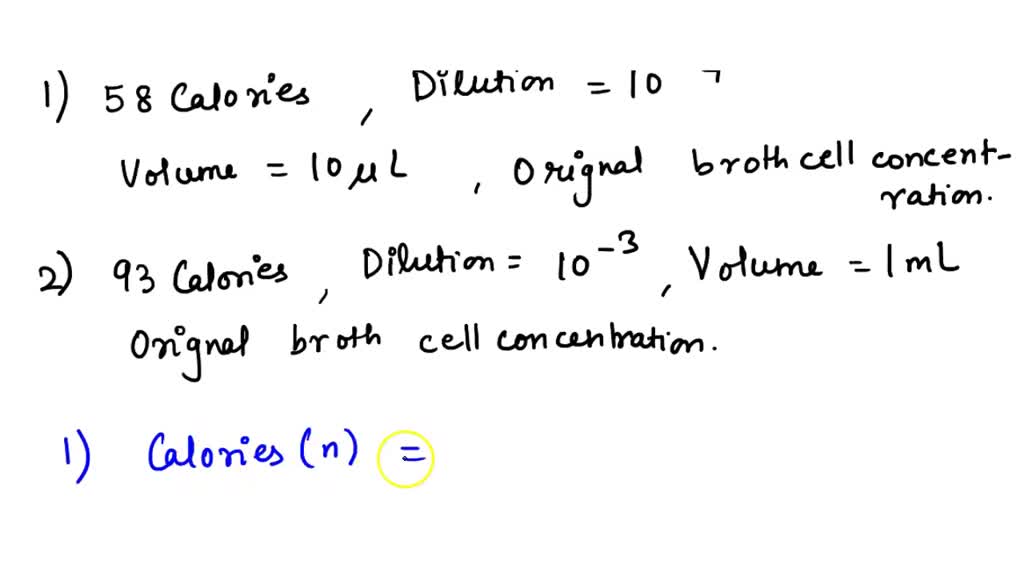 1) 58 Calories , Dilution = 10
Volume = 10 μL , Orignal broth cell concent-
ration.
2) 93 Calories , Dilution = 10⁻³ , Volume = 1 mL
Orignal broth cell concentration.
1) Calories (n) =